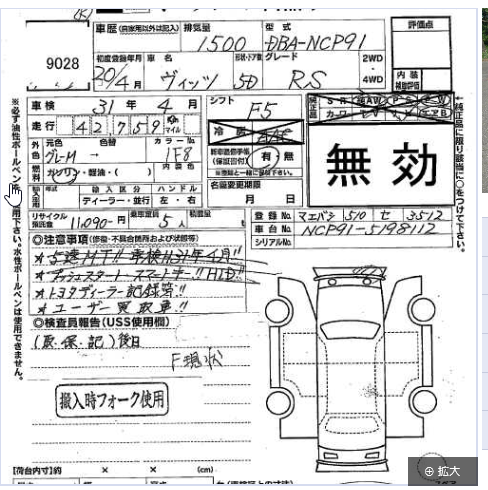 車歴(自家用以外は記入) 排気量 型式 評価点
1500 DBA-NCP91
9028
初度登録年月 車名 形状・ドア数 グレード 2WD
20/4月 ヴィッツ 5D RS 4WD
内装
車検 31年 4月 シフト F5
走行 42759 Km マイル
冷房
外色 元色 色替 カラーNo. 内装色
グレーM → 1F8
有・無
無効
燃料 ガソリン・軽油・( )
輸入車 輸入区分 ハンドル
ディーラー・並行 左・右
名義変更期限
月 日
リサイクル預託金 11,090-円 乗車定員 5人 積載量
登録No. マエバシ 510 セ 3512
車台No. NCP91-5198112
シリアルNo.
◎注意事項(修復・不具合箇所および状態等)
*5速MT!! 車検H31年4月!!
*プッシュスタート スマートキー!! HID!!
*トヨタディーラー記録簿!!
*ユーザー買取車!!
◎検査員報告(USS使用欄)
(取・保・記)後日
F現状
搬入時フォーク使用
【荷台内寸】約 × × (cm)
※必ず油性ボールペン
用下さい。水性ボールペンは使用できません。
←純正品に限り該当に○をつけて下さい。
拡大